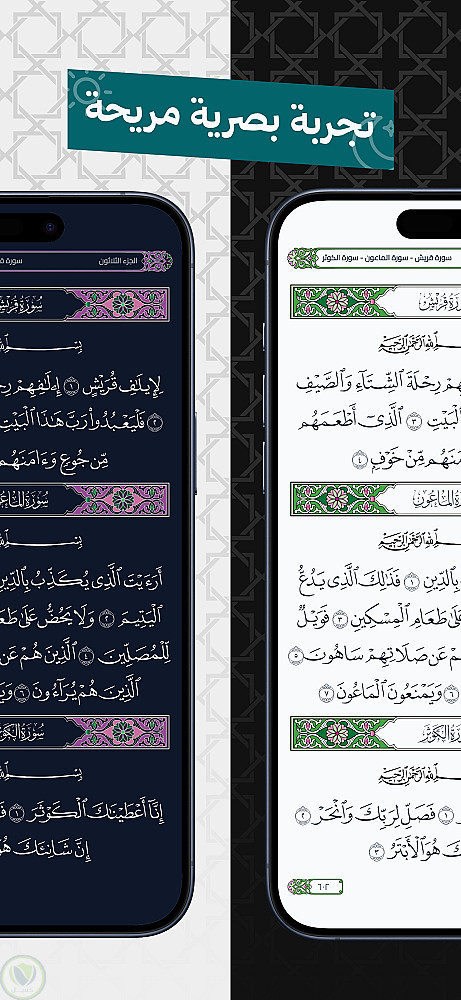 تجربة بصرية مريحة
سورة قريش - سورة الماعون - سورة الكوثر
قُرَيْشٍ
ٱللَّهِ ٱلرَّحْمَٰنِ ٱلرَّحِيمِ
رِحْلَةَ ٱلشِّتَآءِ وَٱلصَّيْفِ
ٱلْبَيْتِ ٣ ٱلَّذِىٓ أَطْعَمَهُم
مِّنْ خَوْفٍۭ ٤
ٱلْمَاعُونِ
ٱللَّهِ ٱلرَّحْمَٰنِ ٱلرَّحِيمِ
بِٱلدِّينِ ١ فَذَٰلِكَ ٱلَّذِى يَدُعُّ
عَلَىٰ طَعَامِ ٱلْمِسْكِينِ ٣ فَوَيْلٌ
عَن صَلَاتِهِمْ سَاهُونَ ٥
٦ وَيَمْنَعُونَ ٱلْمَاعُونَ ٧
ٱلْكَوْثَرِ
ٱللَّهِ ٱلرَّحْمَٰنِ ٱلرَّحِيمِ
١ فَصَلِّ لِرَبِّكَ وَٱنْحَرْ ٢
هُوَ ٱلْأَبْتَرُ ٣
٦٠٢
الجزء الثلاثون
سورة
سُورَةُ قُرَيْشٍ
لِإِيلَٰفِ قُرَيْشٍ ١ إِۦلَٰفِهِمْ
٢ فَلْيَعْبُدُوا۟ رَبَّ هَٰذَا ٱلْبَيْتِ
مِّن جُوعٍ وَءَامَنَهُم
سُورَةُ ٱلْمَاعُونِ
أَرَءَيْتَ ٱلَّذِى يُكَذِّبُ بِٱلدِّينِ
ٱلْيَتِيمَ ٢ وَلَا يَحُضُّ عَلَىٰ
لِّلْمُصَلِّينَ ٤ ٱلَّذِينَ هُمْ عَن
ٱلَّذِينَ هُمْ يُرَآءُونَ ٦
سُورَةُ ٱلْكَوْثَرِ
إِنَّآ أَعْطَيْنَٰكَ ٱلْكَوْثَرَ ١
إِنَّ شَانِئَكَ